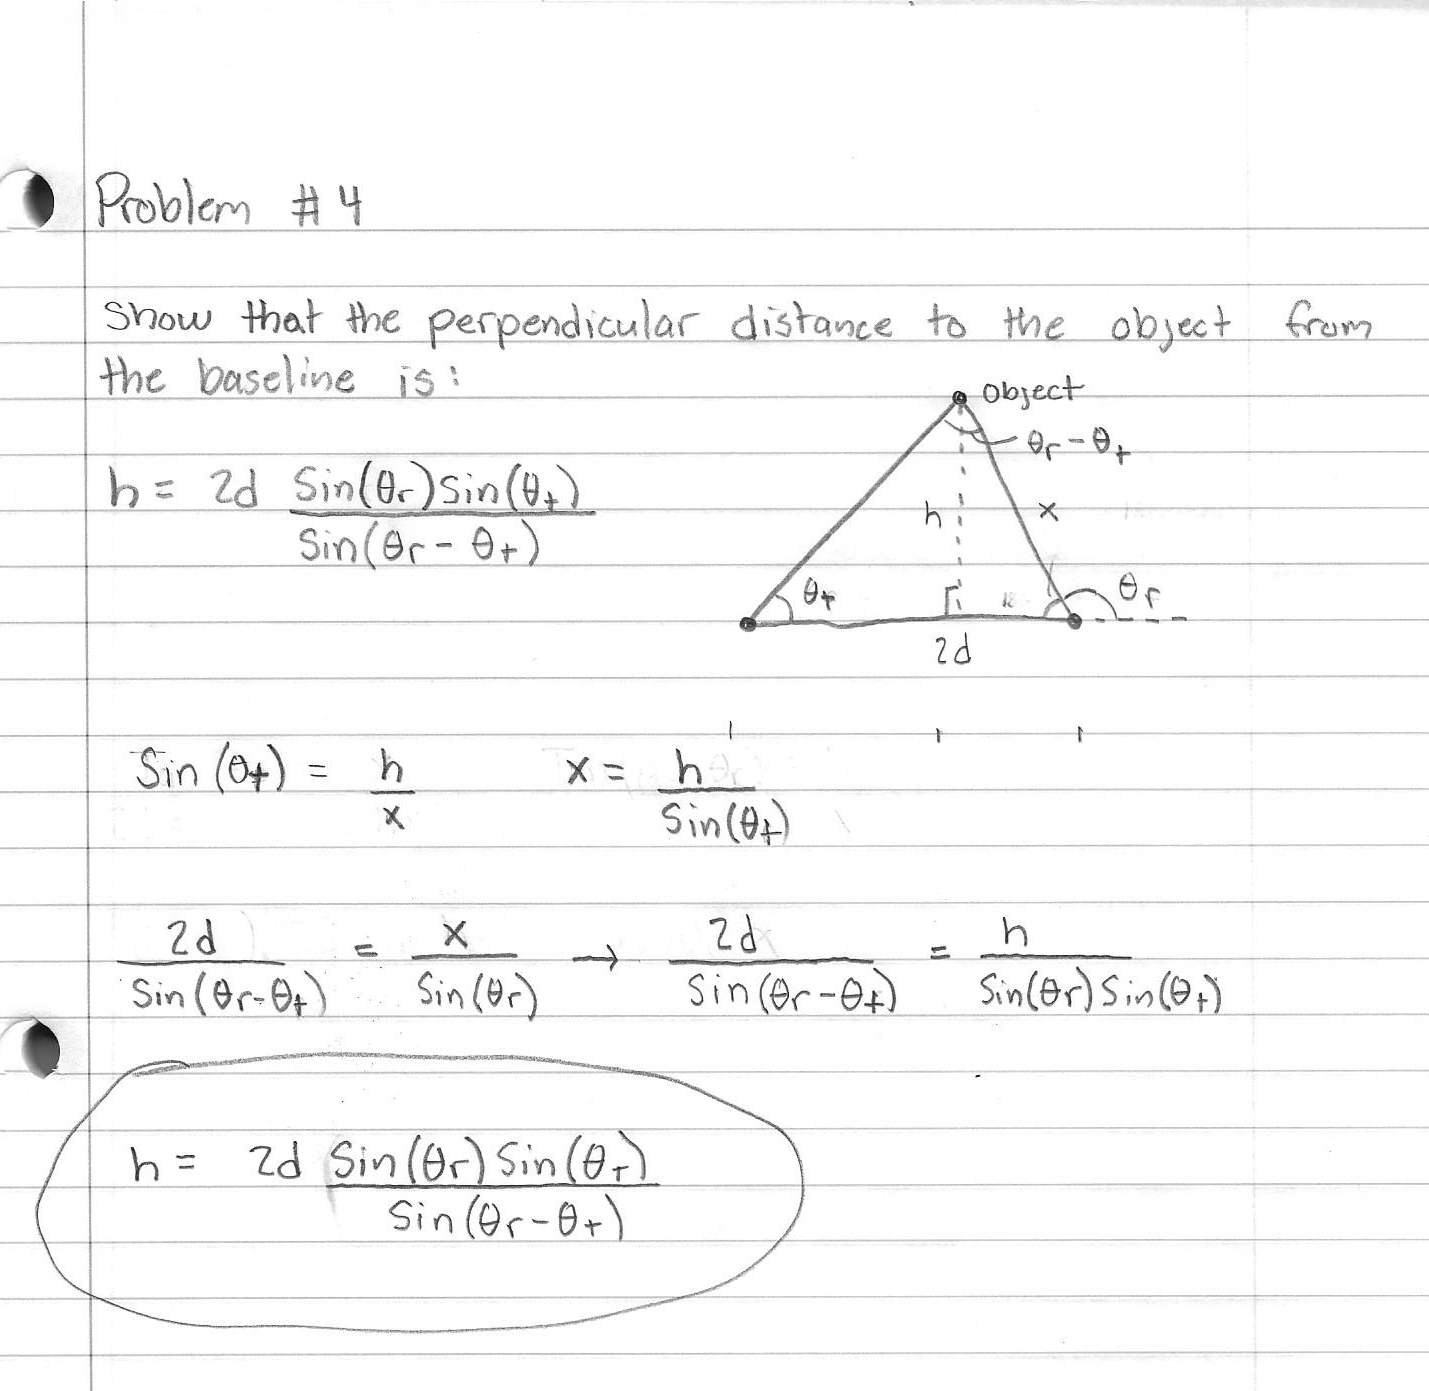 Problem #4
Show that the perpendicular distance to the object from
the baseline is:
object
θr - θt
h = 2d Sin(θr)Sin(θt)
Sin(θr - θt)
h
x
θt
θr
2d
Sin(θt) = h
x
x = h
Sin(θt)
2d = x → 2d = h
Sin(θr-θt) Sin(θr) Sin(θr-θt) Sin(θr)Sin(θt)
h = 2d Sin(θr)Sin(θt)
Sin(θr-θt)